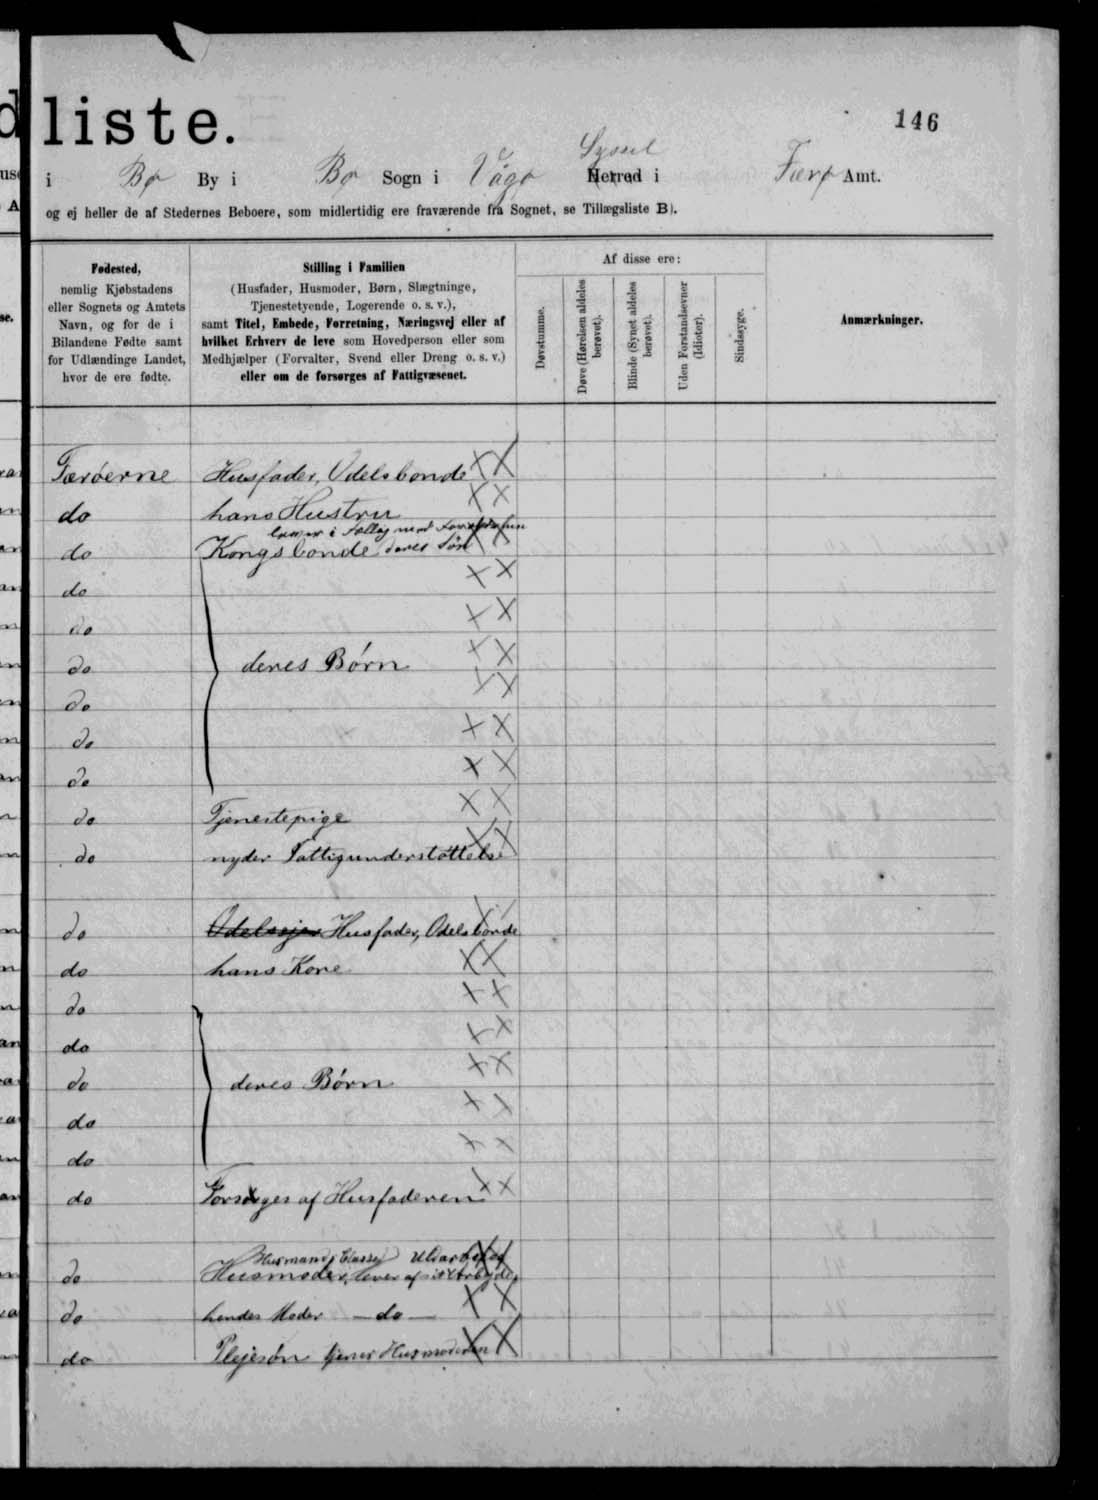 liste.
146
i Bø By i Bø Sogn i Vågø Syssel Herred i Færø Amt.
og ej heller de af Stedernes Beboere, som midlertidig ere fraværende fra Sognet, se Tillægsliste B).
Fødested,
nemlig Kjøbstadens
eller Sognets og Amtets
Navn, og for de i
Bilandene Fødte samt
for Udlændinge Landet,
hvor de ere fødte.
Stilling i Familien
(Husfader, Husmoder, Børn, Slægtninge,
Tjenestetyende, Logerende o. s. v.),
samt Titel, Embede, Forretning, Næringsvej eller af
hvilket Erhverv de leve som Hovedperson eller som
Medhjælper (Forvalter, Svend eller Dreng o. s. v.)
eller om de forsørges af Fattigvæsenet.
Af disse ere:
Døvstumme.
Døve (Hørelsen aldeles
berøvet).
Blinde (Synet aldeles
berøvet).
Uden Forstandsevner
(Idioter).
Sindssyge.
Anmærkninger.
Færøerne Husfader, Odelsbonde
do hans Hustru
i Fællig med
do Kongsbonde deres Søn
do
do
do deres Børn
do
do
do
do Tjenestepige
do nyder Fattigunderstøttelse
do Husfader, Odelsbonde
do hans Kone
do
do
do deres Børn
do
do
do Forsørges af Husfaderen
Husmands Classe Uldarbejde
do Husmoder, lever af sit Arbejde
do hendes Moder — do —
do Plejesøn tjener Husmoderen